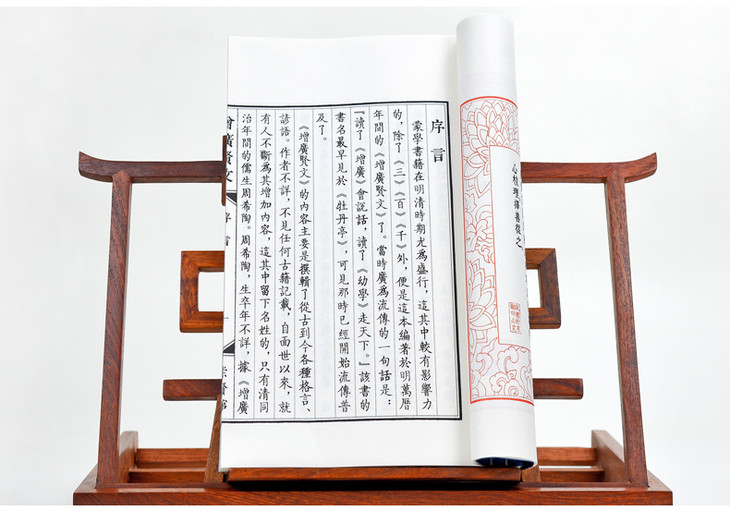 序言
蒙學書籍在明清時期尤為盛行,這其中較有影響力
的,除了《三》《百》《千》外,便是這本編著於明萬曆
年間的《增廣賢文》了。當時廣為流傳的一句話是:
『讀了《增廣》會說話,讀了《幼學》走天下。』該書的
書名最早見於《牡丹亭》,可見那時已經開始流傳普
及了。
《增廣賢文》的內容主要是撰輯了從古到今各種格言、
諺語。作者不詳,不見任何古籍記載,自面世以來,就
有人不斷為其增加內容,這其中留下名姓的,只有清同
治年間的儒生周希陶。周希陶,生卒年不詳,據《增廣
增廣賢文
序言
一
崇賢館
擇善從之